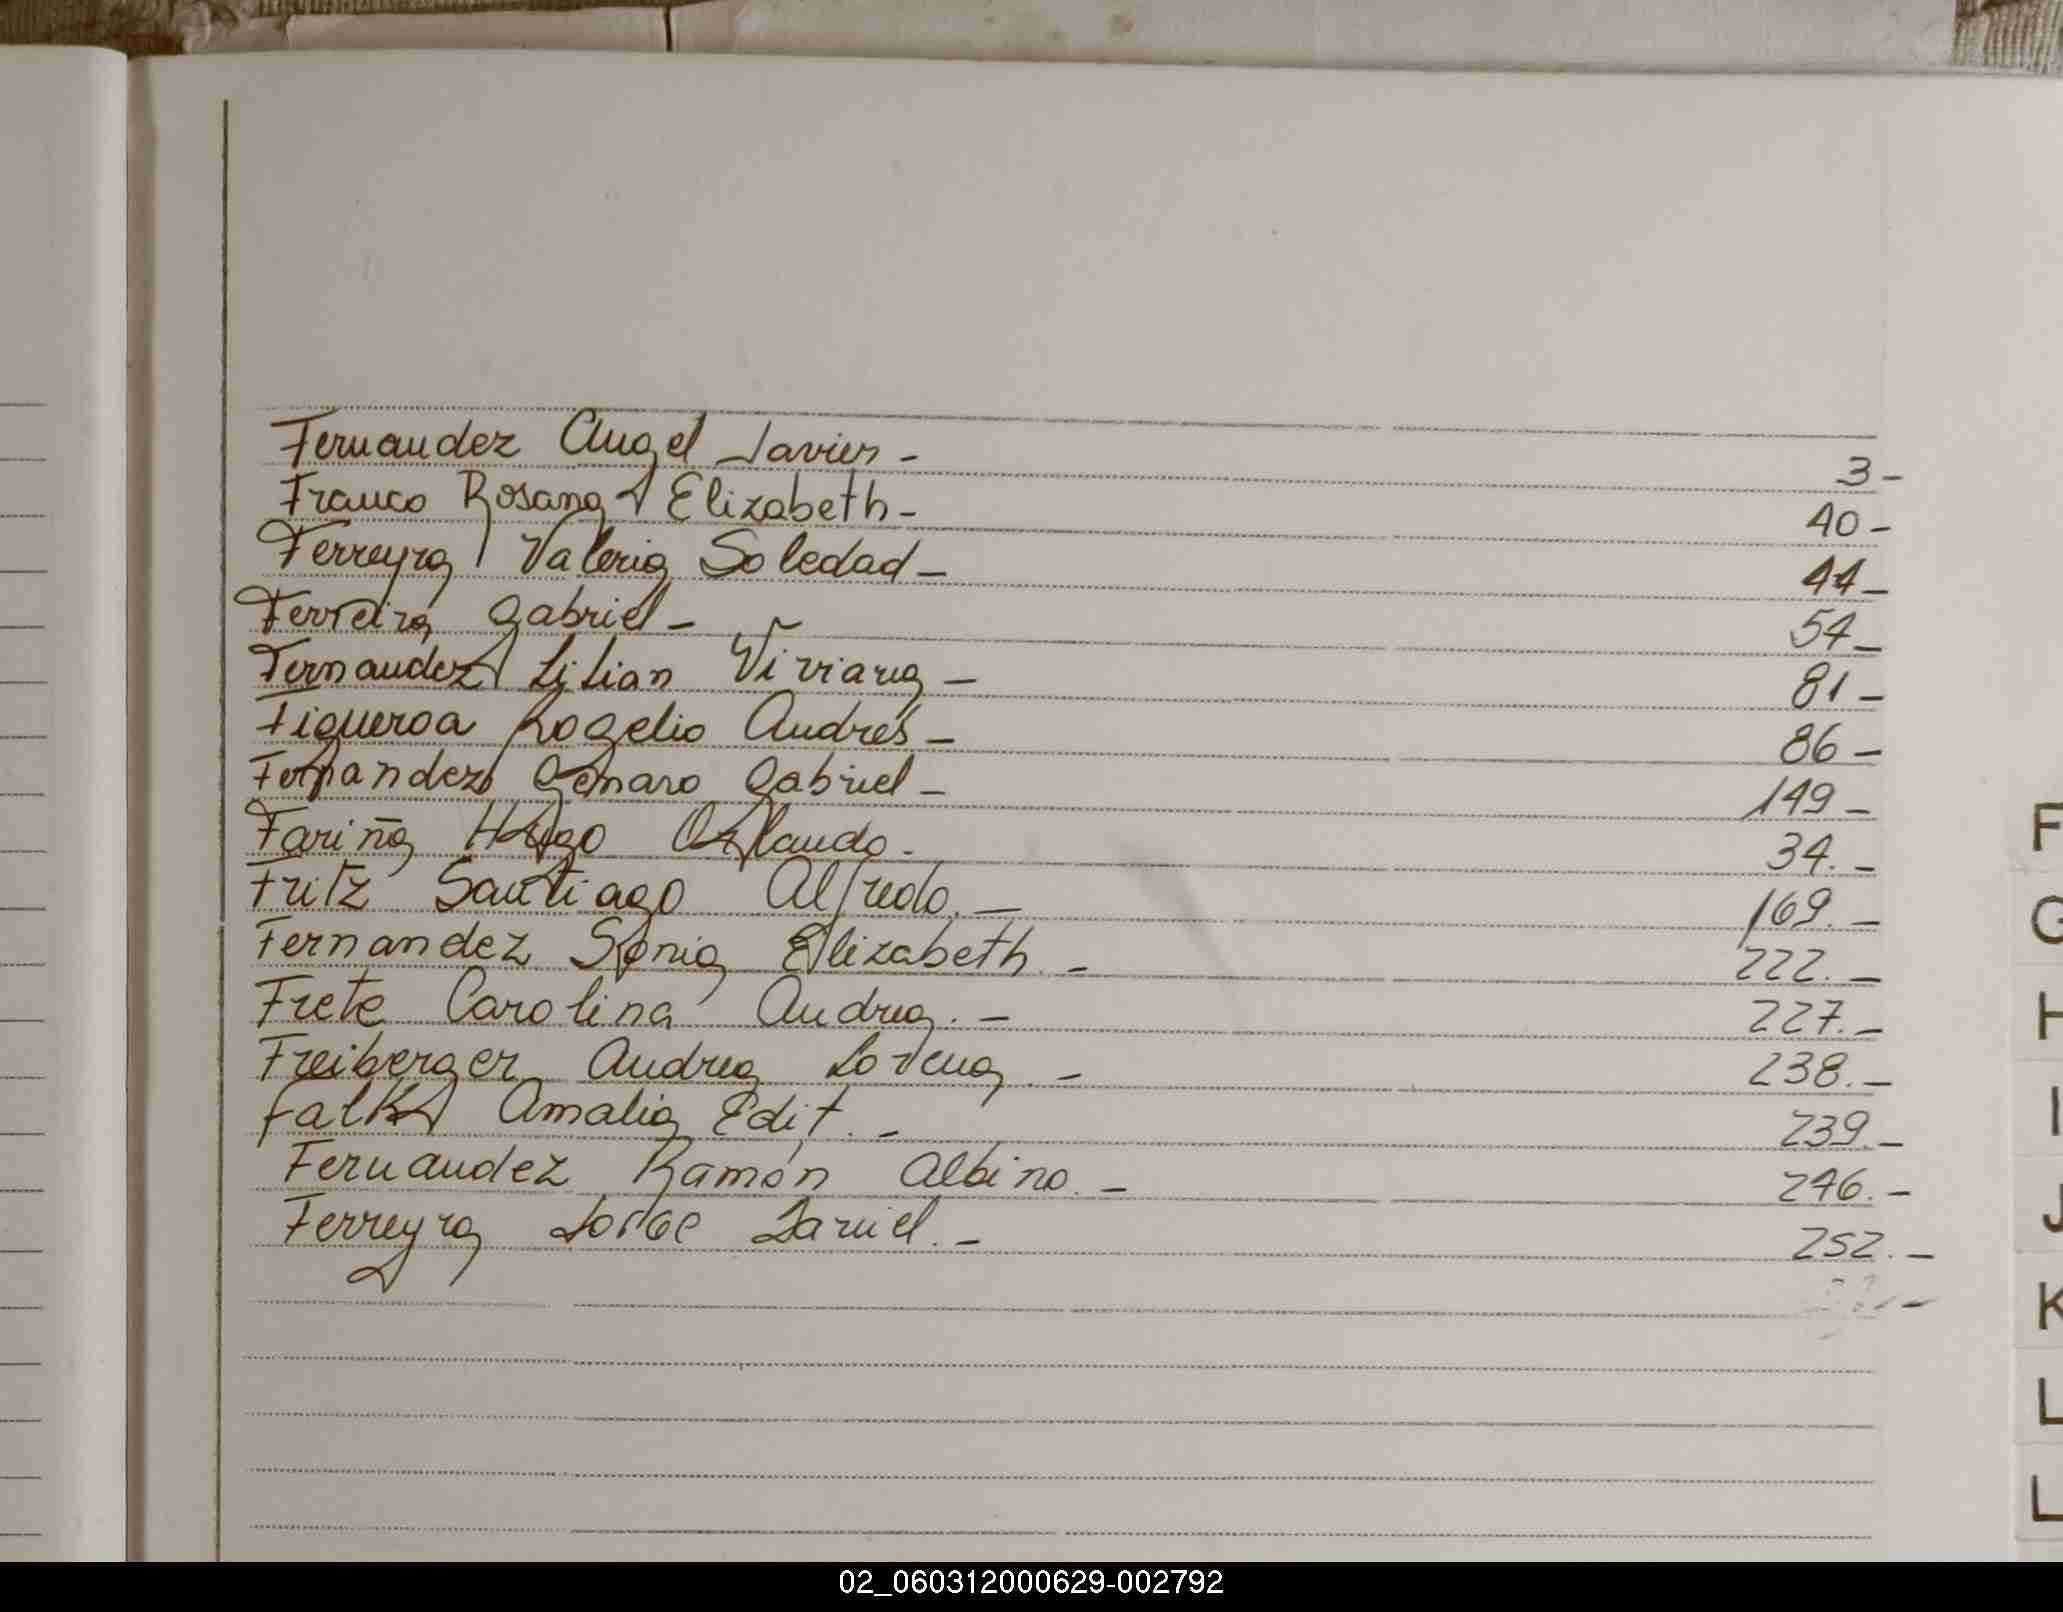 Fernandez Angel Javier - 3 -
Franco Rosana Elizabeth - 40 -
Ferreyra Valeria Soledad - 44 -
Ferreira Gabriel - 54 -
Fernandez Lilian Viviana - 81 -
Figueroa Rogelio Andrés - 86 -
Fernandez Genaro Gabriel - 149 -
Fariña Hugo Orlando - 34. -
Fritz Santiago Alfredo. - 169. -
Fernandez Sonia Elizabeth. - 222. -
Frete Carolina Andrea. - 227. -
Freiberger Andrea Lorena. - 238. -
Falk Amalia Edit. - 239. -
Fernandez Ramón Albino. - 246. -
Ferreyra Jorge Daniel. - 252. -
F
G
H
I
J
K
L
02_060312000629-002792